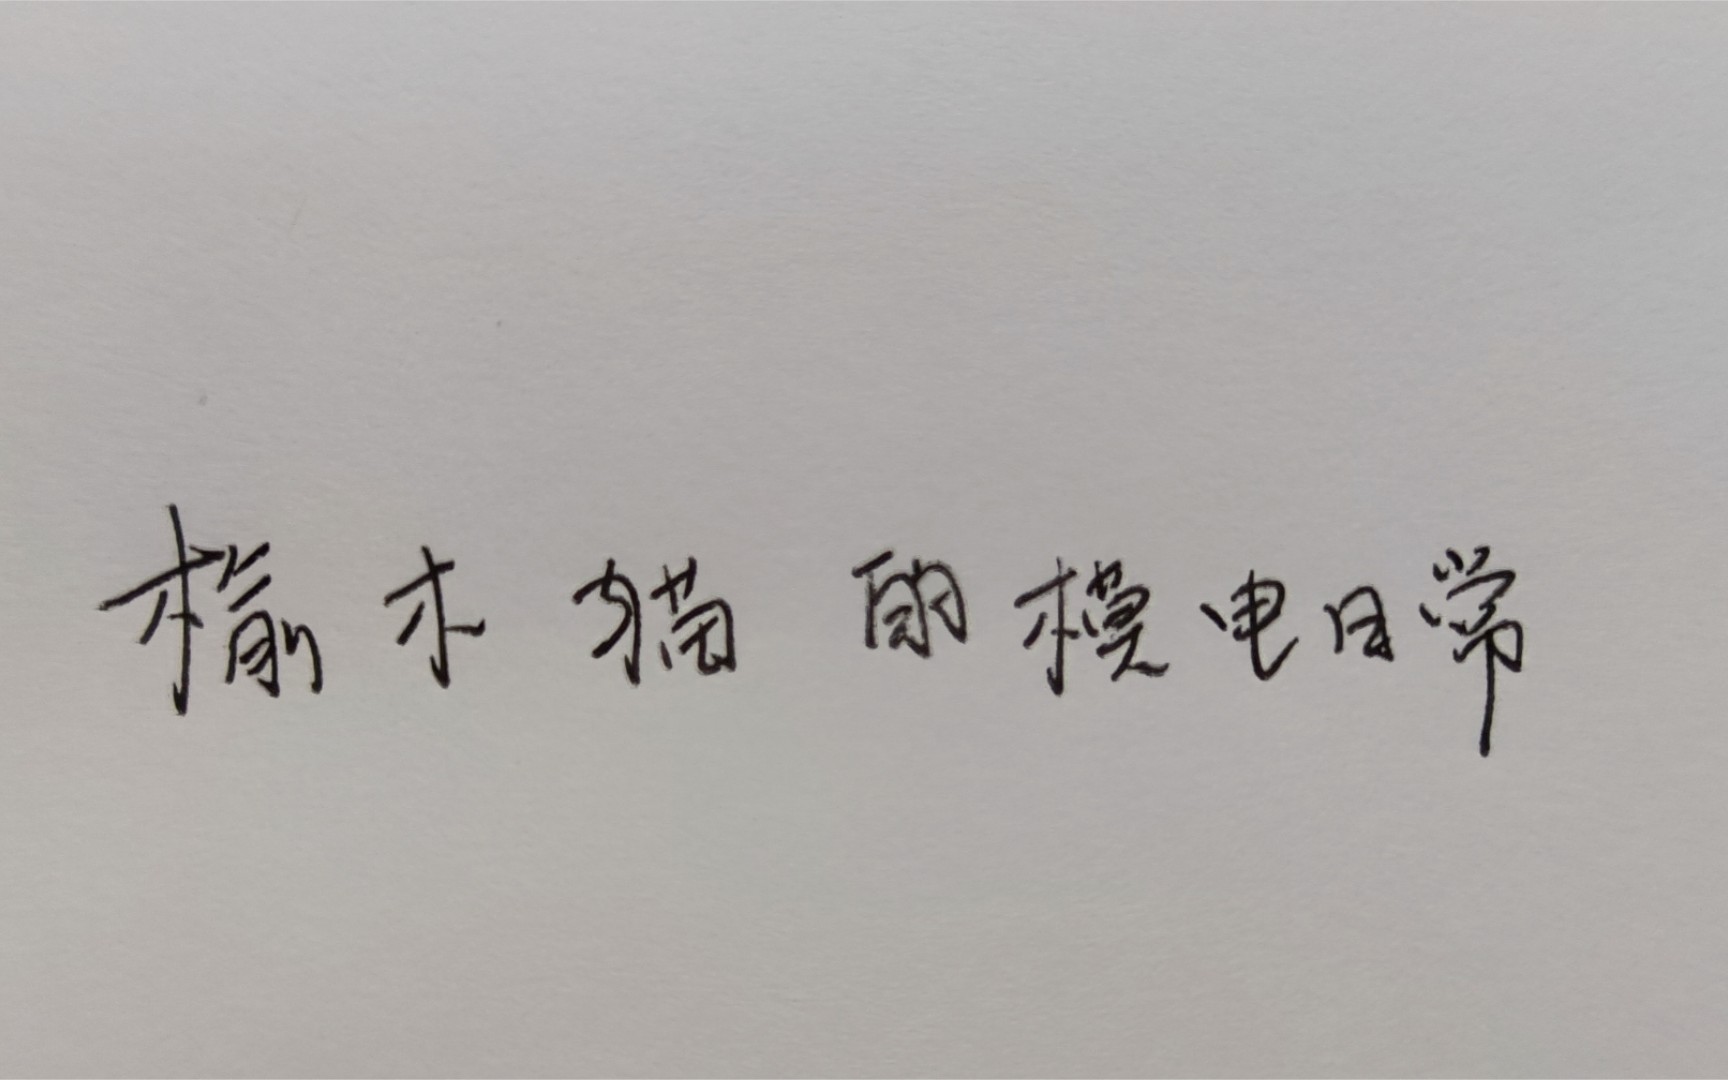 榆木猫的模电日常